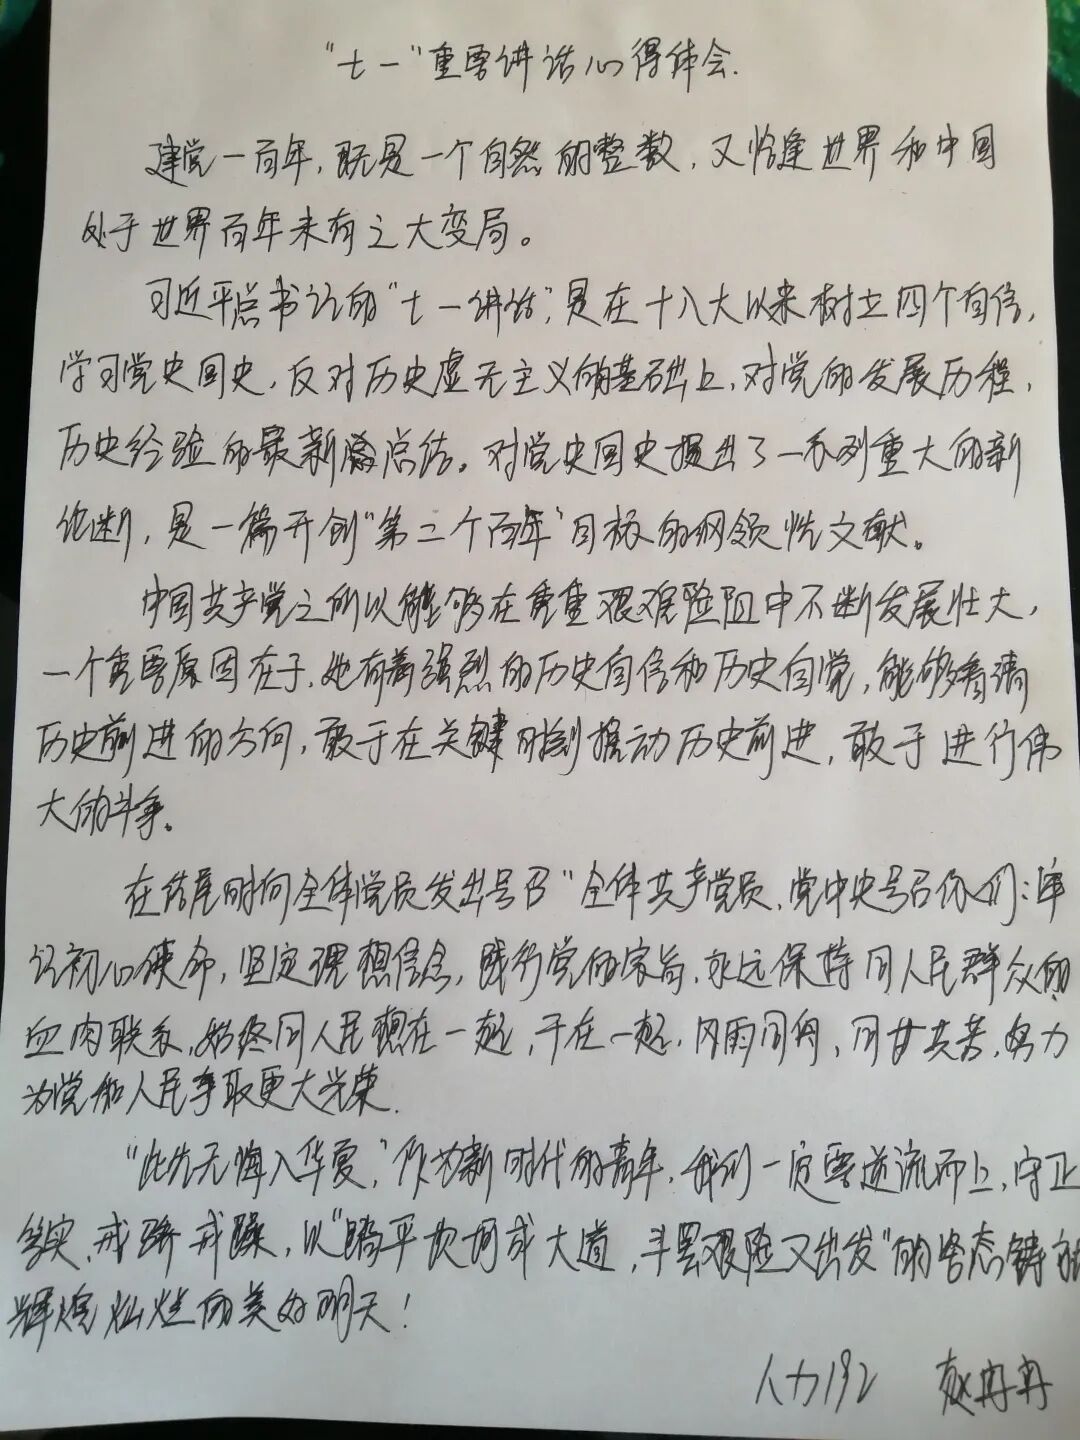 “七一”重要讲话心得体会.
建党一百年，既是一个自然的整数，又恰逢世界和中国
处于世界百年未有之大变局。
习近平总书记的“七一讲话”，是在十八大以来树立四个自信，
学习党史国史，反对历史虚无主义的基础上，对党的发展历程，
历史经验的最新总结。对党史国史提出了一系列重大的新
论断，是一篇开创“第二个百年”目标的纲领性文献。
中国共产党之所以能够在重重艰难险阻中不断发展壮大，
一个重要原因在于，她有着强烈的历史自信和历史自觉，能够看清
历史前进的方向，敢于在关键时刻推动历史前进，敢于进行伟
大的斗争。
在结尾时向全体党员发出号召“全体共产党员，党中央号召你们：牢
记初心使命，坚定理想信念，践行党的宗旨，永远保持同人民群众的
血肉联系，始终同人民想在一起，干在一起，风雨同舟，同甘共苦，努力
为党和人民争取更大光荣.
“此生无悔入华夏，”作为新时代的青年，我们一定要逆流而上，守正
务实、戒骄戒躁，以“踏平坎坷成大道，斗罢艰险又出发”的姿态铸就
辉煌灿烂的美好明天！
人力192 赵冉冉